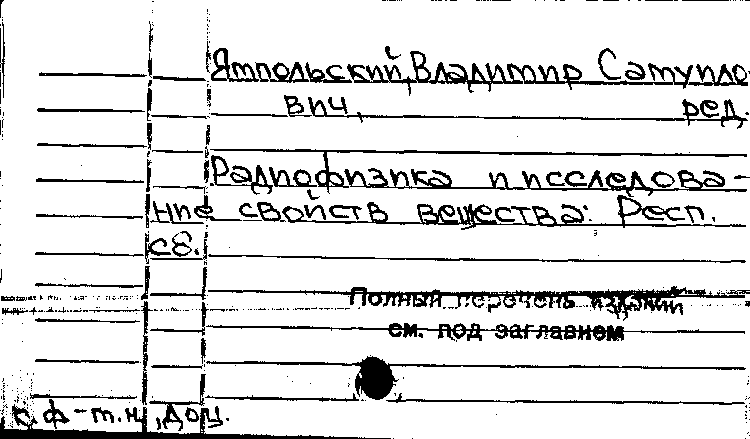 Ямпольский, Владимир Самуило-
вич, ред.
Радиофизика и исследова-
ние свойств вещества: Респ.
сб.
Полный перечень изданий
см. под заглавием
к.ф-т.н., доц.